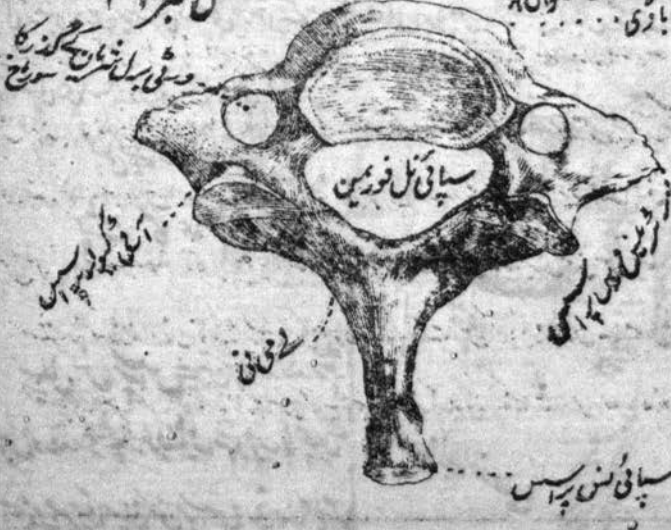 باڈی
ورٹی برل شریان کے گزر کا
سوراخ
سپائی نل فوریمین
آرٹی کیولر پراسس
ٹرینس ورس پراسس
لے می نی
سپائی نس پراسس